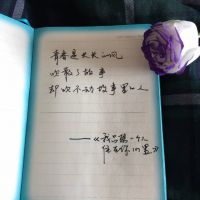 青春是大大的风
吹散了故事
却吹不动故事里的人
——《我只愿一个人
住在你心里》